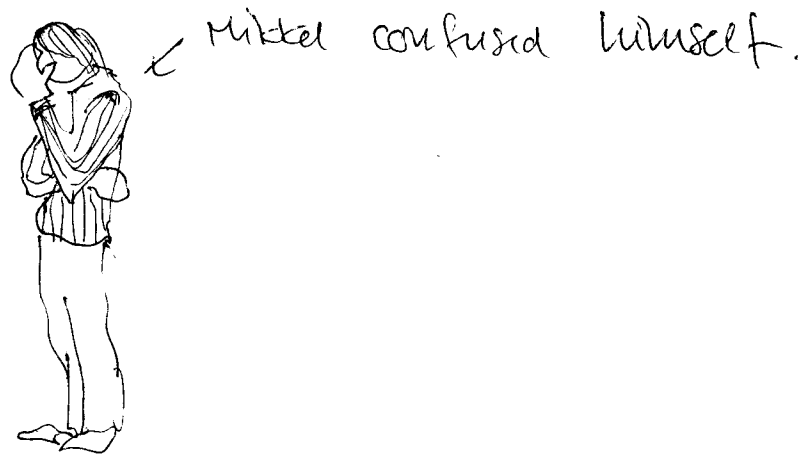 Mikkel confused himself.